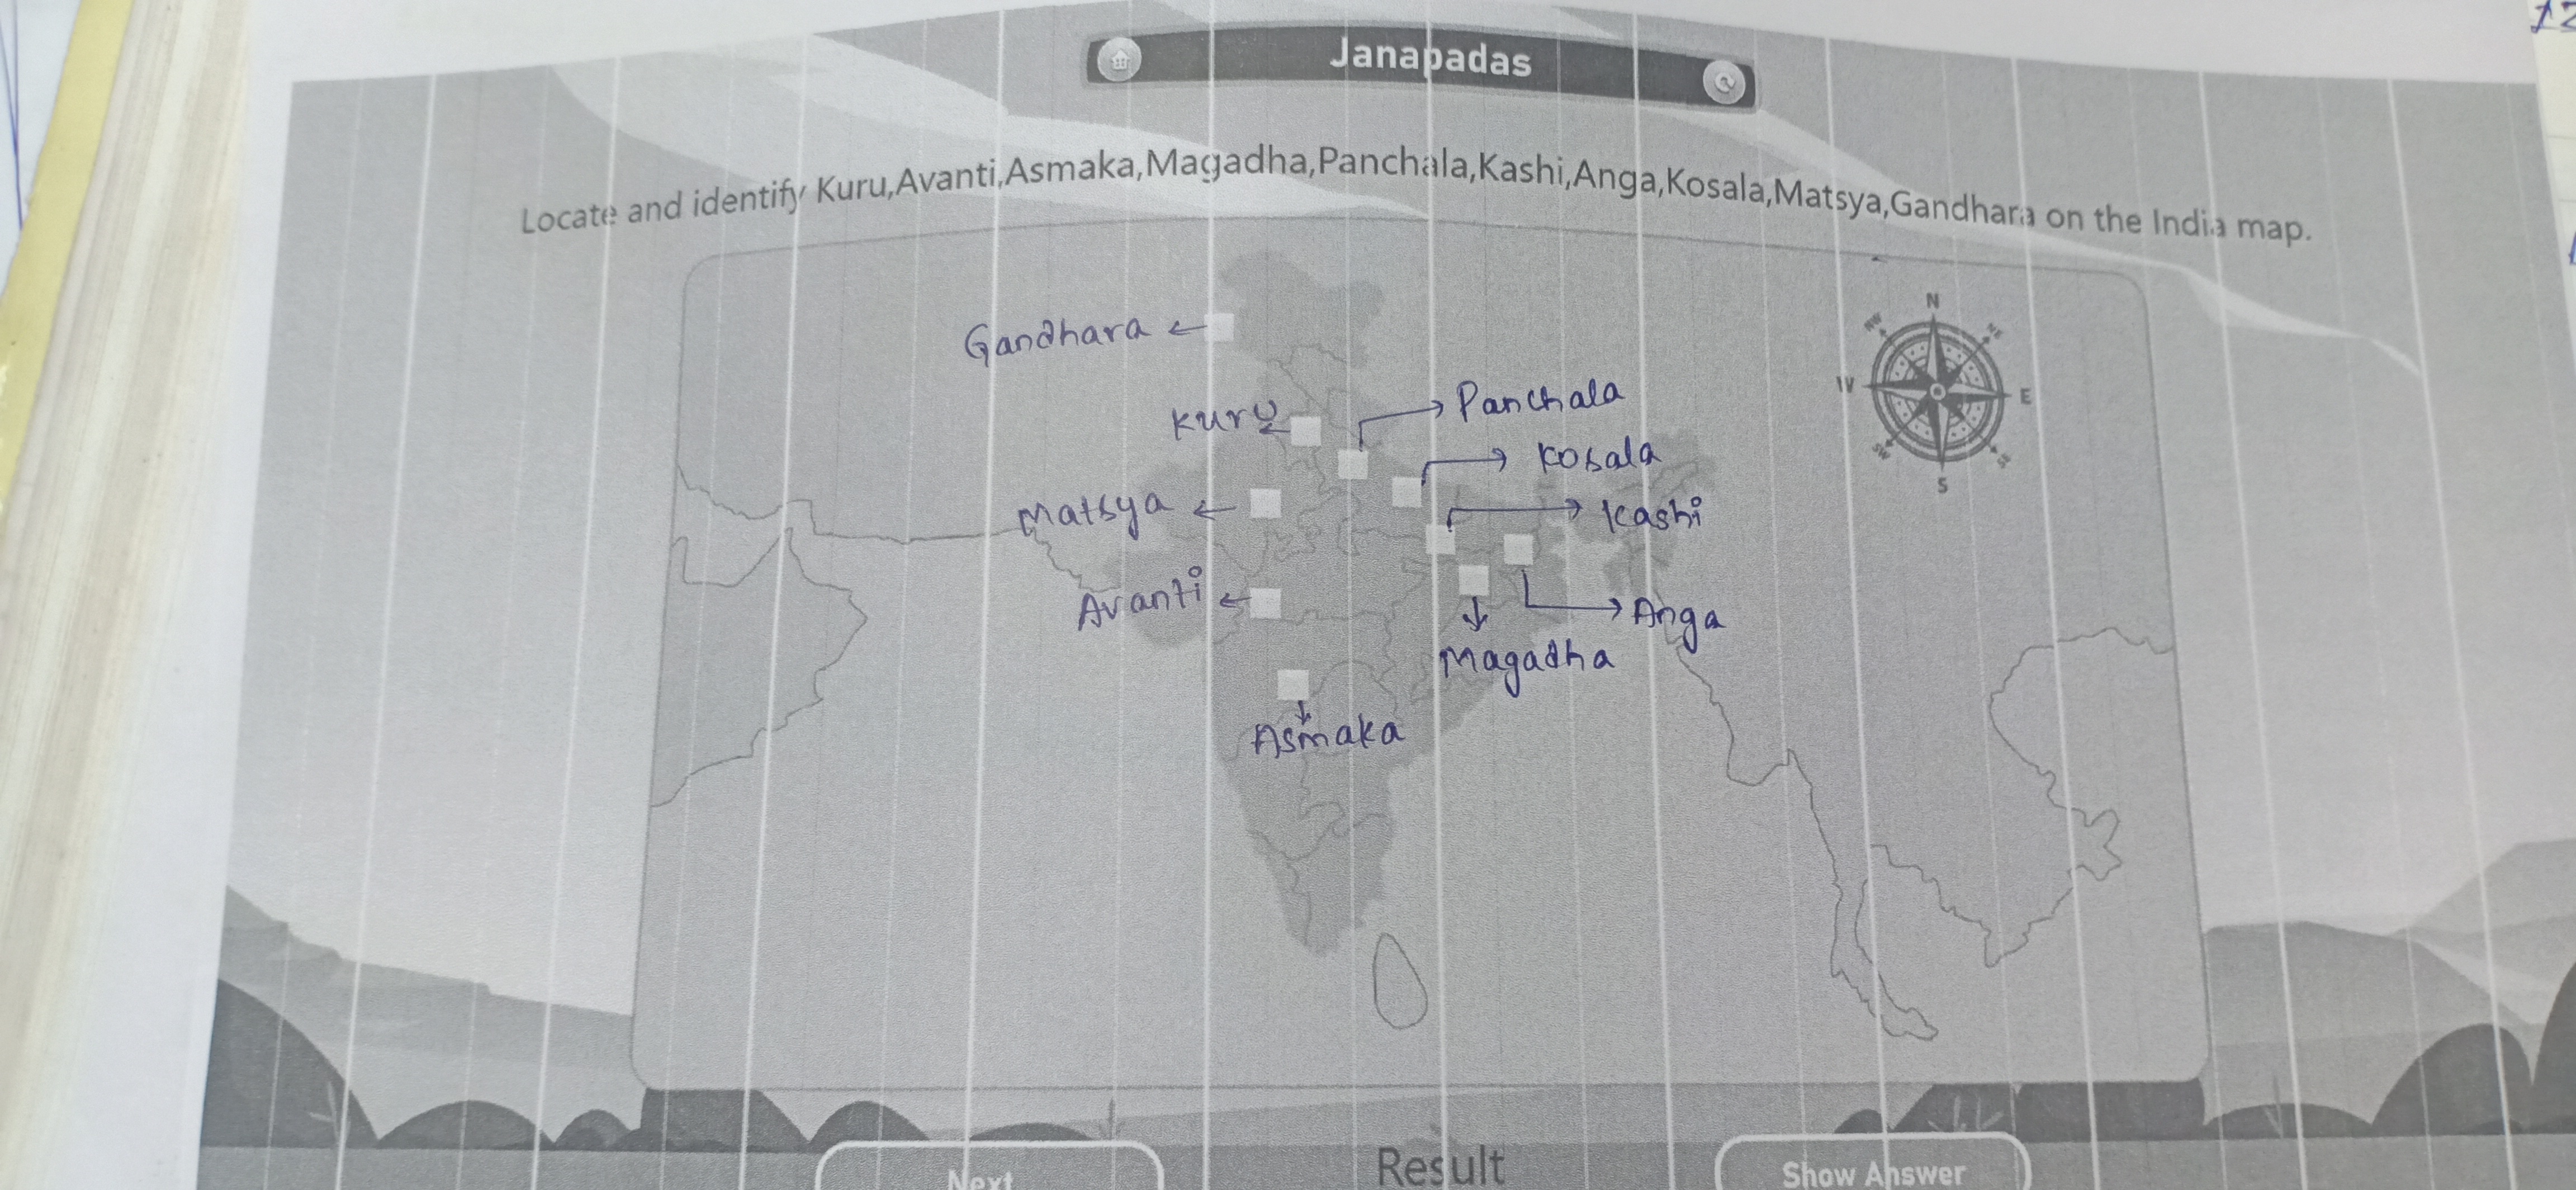 Janapadas
Locate and identify Kuru,Avanti,Asmaka,Magadha,Panchala,Kashi,Anga,Kosala,Matsya,Gandhara on the India map.
N
NW
NE
Gandhara
W
E
Panchala
Kuru
SW
SE
Kosala
S
Matsya
Kashi
Avanti
Anga
Magadha
Asmaka
Next
Result
Show Answer